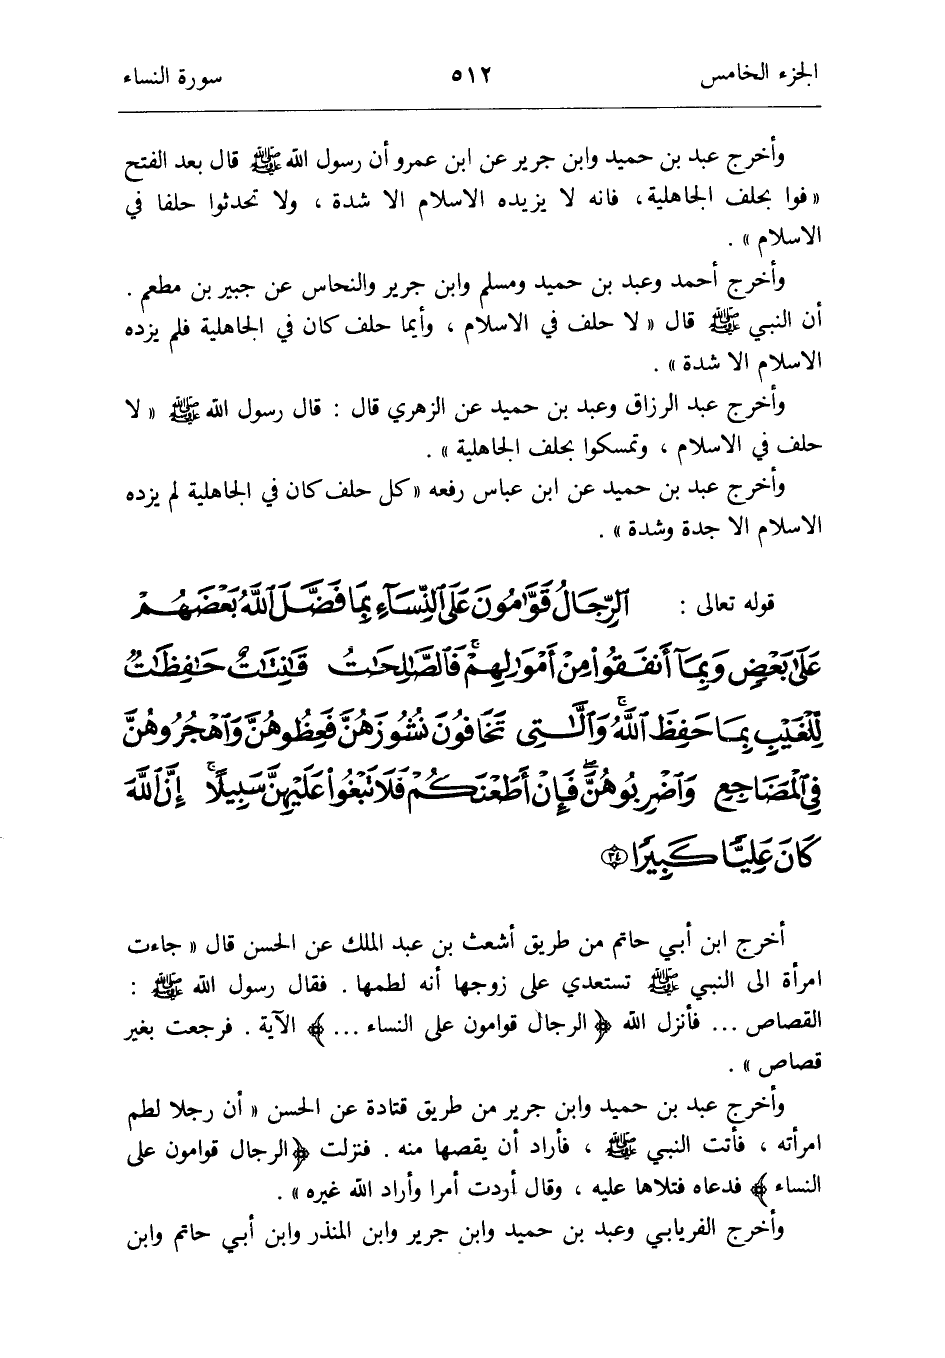 الجزء الخامس ٥١٢ سورة النساء
وأخرج عبد بن حميد وابن جرير عن ابن عمرو أن رسول الله ﷺ قال بعد الفتح
« فوا بحلف الجاهلية ، فانه لا يزيده الاسلام الا شدة ، ولا تحدثوا حلفا في
الاسلام » .
وأخرج أحمد وعبد بن حميد ومسلم وابن جرير والنحاس عن جبير بن مطعم .
أن النبي ﷺ قال « لا حلف في الاسلام ، وأيما حلف كان في الجاهلية فلم يزده
الاسلام الا شدة » .
وأخرج عبد الرزاق وعبد بن حميد عن الزهري قال : قال رسول الله ﷺ « لا
حلف في الاسلام ، وتمسكوا بحلف الجاهلية » .
وأخرج عبد بن حميد عن ابن عباس رفعه « كل حلف كان في الجاهلية لم يزده
الاسلام الا جدة وشدة » .
قوله تعالى : ٱلرِّجَالُ قَوَّٰمُونَ عَلَى ٱلنِّسَآءِ بِمَا فَضَّلَ ٱللَّهُ بَعۡضَهُمۡ
عَلَىٰ بَعۡضٖ وَبِمَآ أَنفَقُواْ مِنۡ أَمۡوَٰلِهِمۡۚ فَٱلصَّٰلِحَٰتُ قَٰنِتَٰتٌ حَٰفِظَٰتٞ
لِّلۡغَيۡبِ بِمَا حَفِظَ ٱللَّهُۚ وَٱلَّٰتِي تَخَافُونَ نُشُوزَهُنَّ فَعِظُوهُنَّ وَٱهۡجُرُوهُنَّ
فِي ٱلۡمَضَاجِعِ وَٱضۡرِبُوهُنَّۖ فَإِنۡ أَطَعۡنَكُمۡ فَلَا تَبۡغُواْ عَلَيۡهِنَّ سَبِيلًاۚ إِنَّ ٱللَّهَ
كَانَ عَلِيّٗا كَبِيرٗا ٣٤
أخرج ابن أبي حاتم من طريق أشعث بن عبد الملك عن الحسن قال « جاءت
امرأة الى النبي ﷺ تستعدي على زوجها أنه لطمها . فقال رسول الله ﷺ :
القصاص ... فأنزل الله ﴿ الرجال قوامون على النساء ... ﴾ الآية . فرجعت بغير
قصاص » .
وأخرج عبد بن حميد وابن جرير من طريق قتادة عن الحسن « أن رجلا لطم
امرأته ، فأتت النبي ﷺ ، فأراد أن يقصها منه . فنزلت ﴿ الرجال قوامون على
النساء ﴾ فدعاه فتلاها عليه ، وقال أردت أمرا وأراد الله غيره » .
وأخرج الفريابي وعبد بن حميد وابن جرير وابن المنذر وابن أبي حاتم وابن